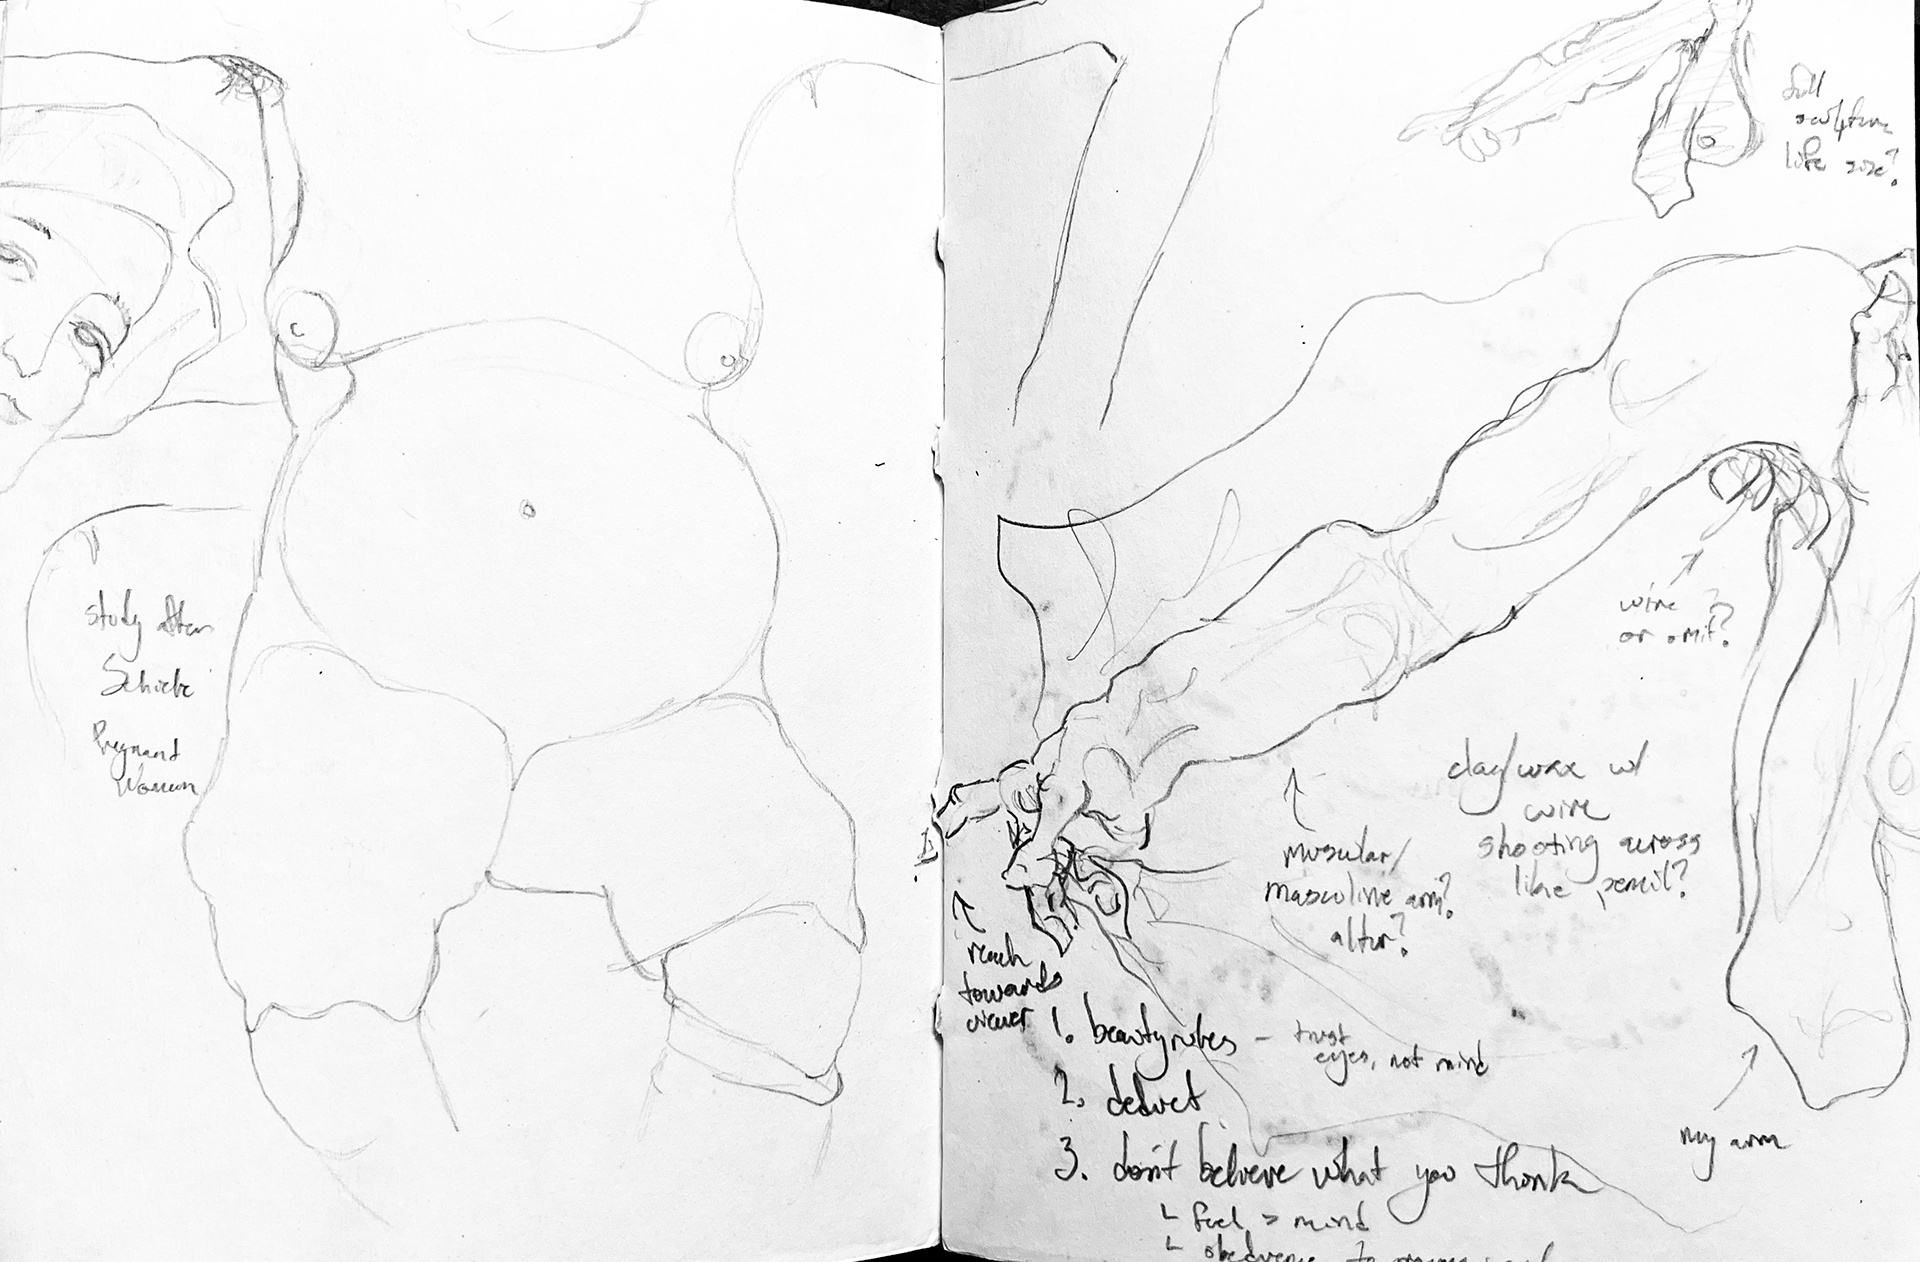 study after
Schiele
Pregnant
Woman
full
sculpture
life size?
wire
or omit?
clay/wax w/
wire
shooting across
like pencil?
muscular/
masculine arm?
altar?
reach
towards
viewer
my arm
1. beauty rules - trust
eyes, not mind
2.
3. don't believe what you think
└ feel > mind
└ to